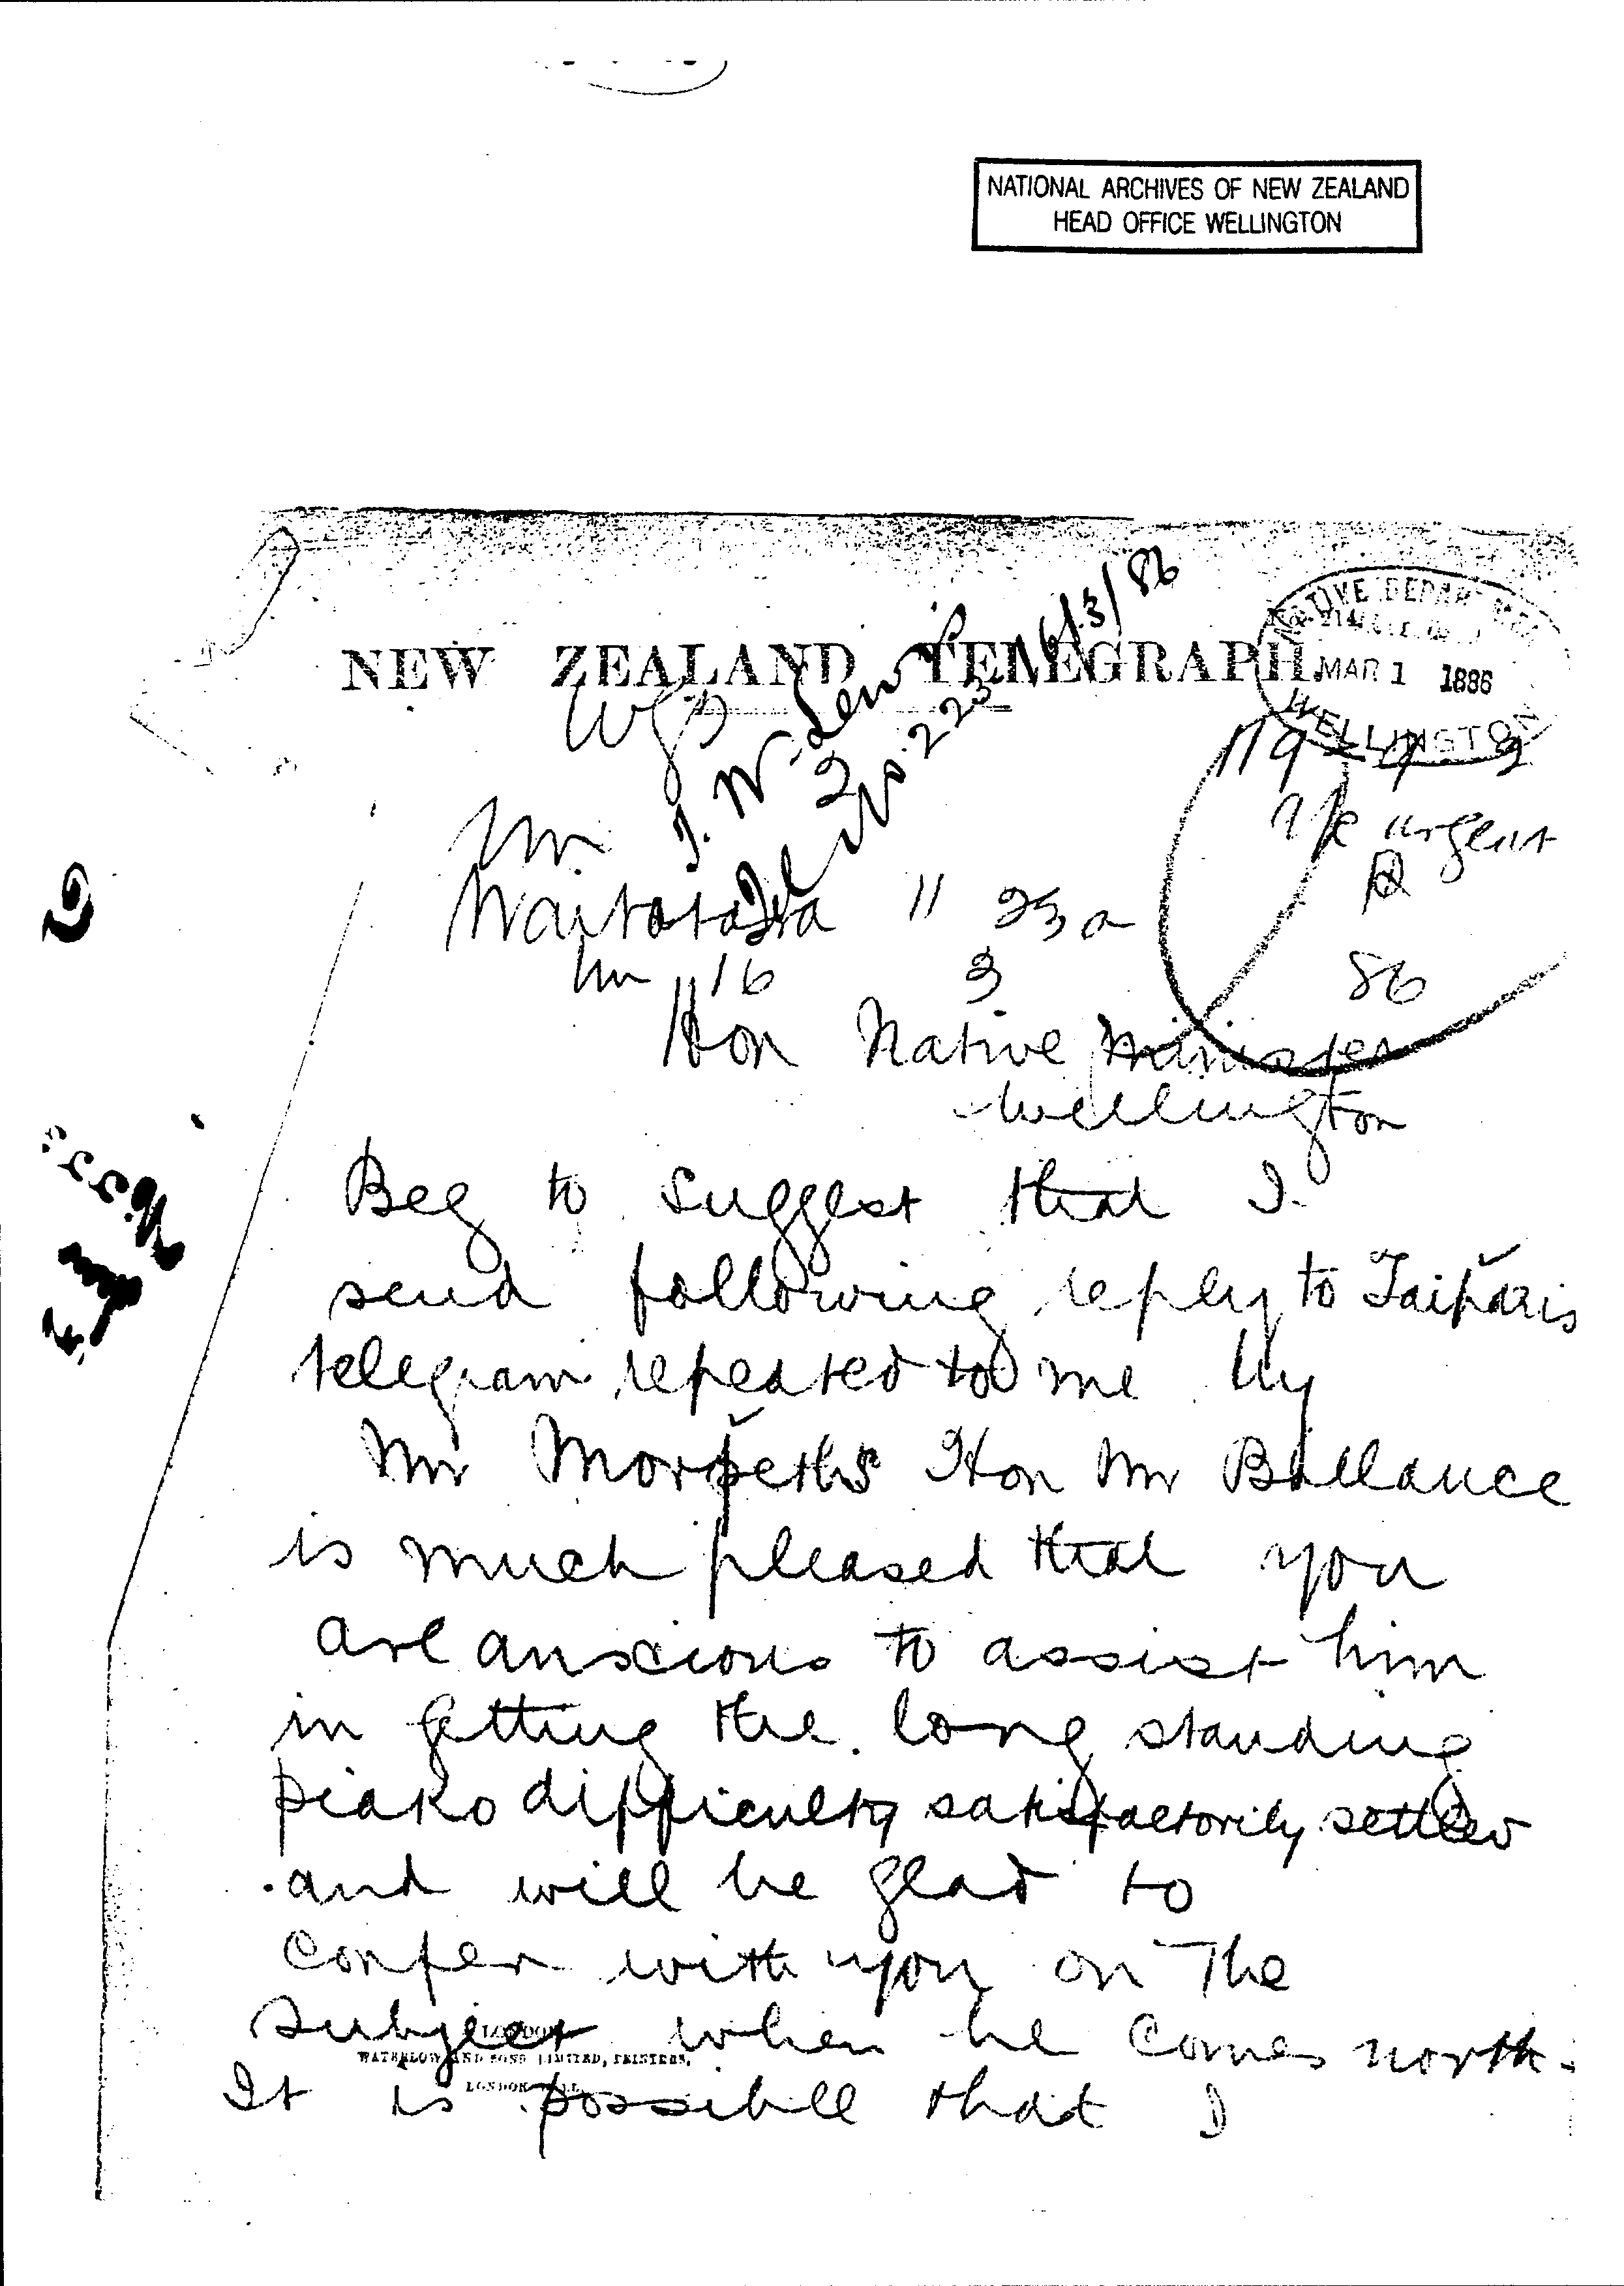 NATIONAL ARCHIVES OF NEW ZEALAND
HEAD OFFICE WELLINGTON
NEW ZEALAND TELEGRAPH.
NATIVE DEPARTMENT
MAR 1 1886
WELLINGTON
16/3/86
T. W. Lewis
No. 223
urgent
Waitotara 11 23 a
16 3 86
Hon Native Minister
Wellington
Beg to suggest that I
send following reply to Taiparis
telegram repeated to me by
Mr Morpeths Hon Mr Ballance
is much pleased that you
are anxious to assist him
in getting the long standing
piako difficulty satisfactorily settled
and will be glad to
confer with you on the
subject when he comes north.
LONDON
WATERLOW AND SONS LIMITED, PRINTERS,
LONDON WALL
It is possible that I